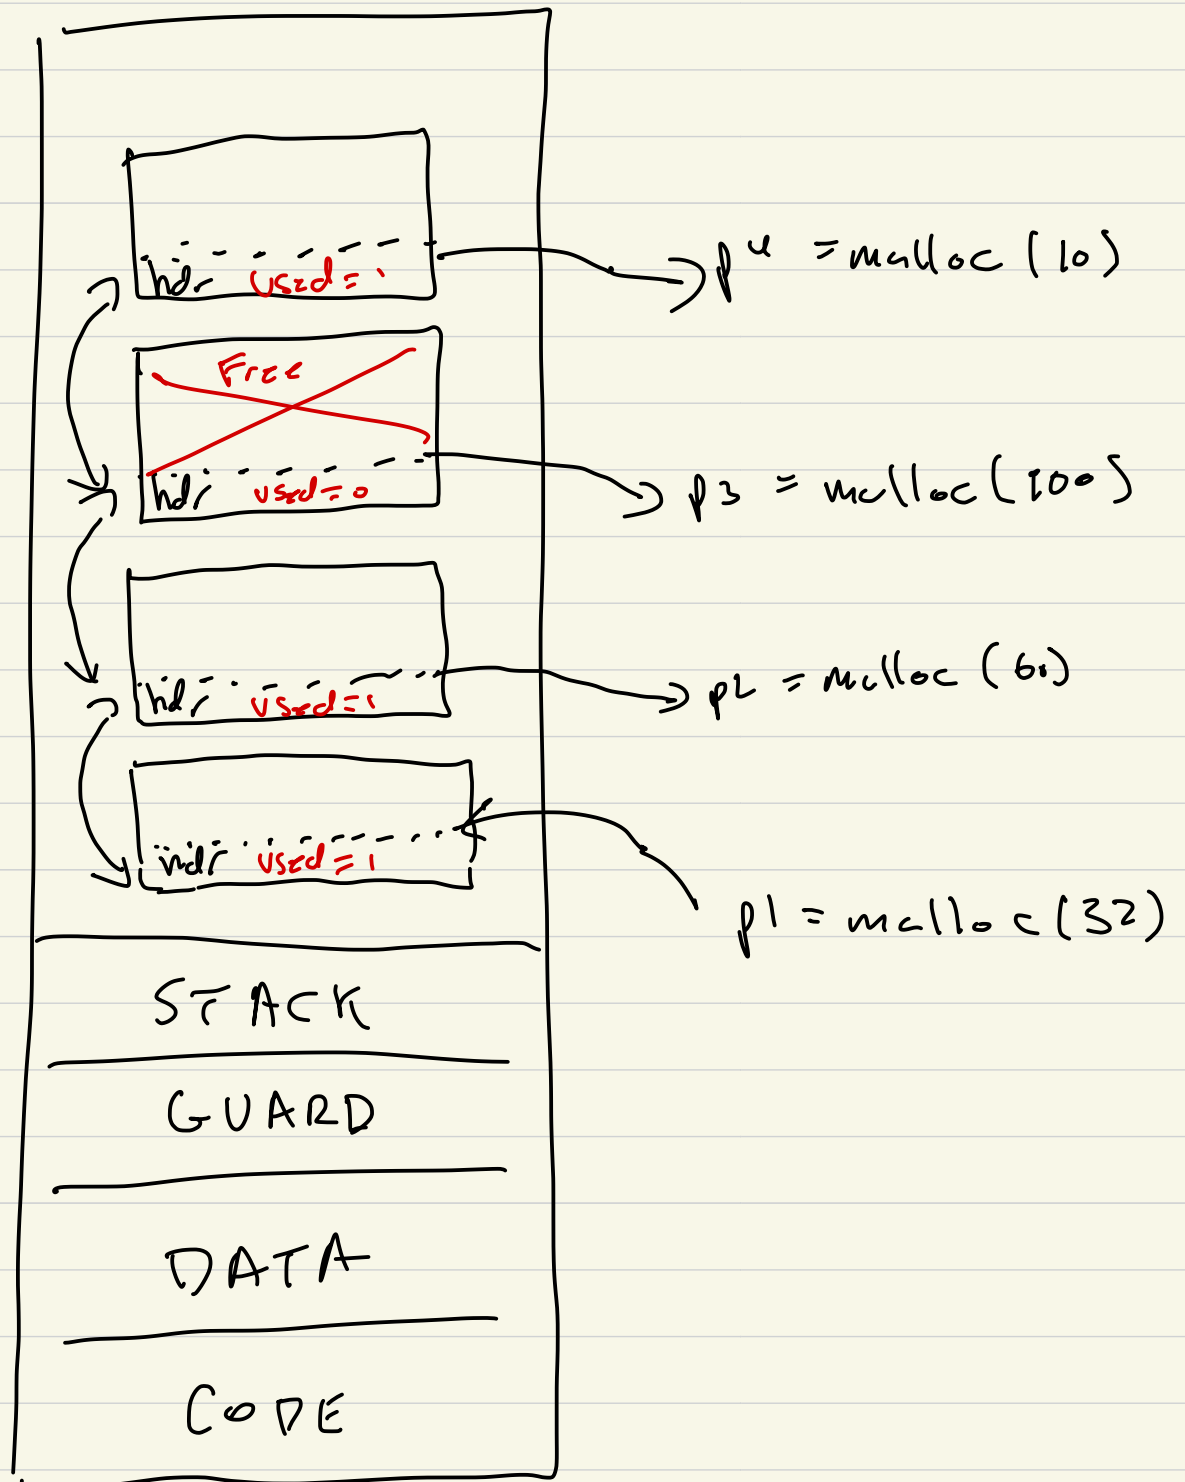 hdr used=1
p4 = malloc (10)
Free
hdr used=0
p3 = malloc (100)
hdr used=1
p2 = malloc (60)
hdr used=1
p1 = malloc (32)
STACK
GUARD
DATA
CODE